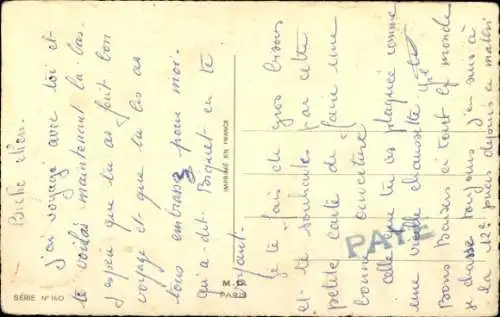 Biche chérie.
j'ai voyagé avec toi et
te voilà maintenant là bas.
J'espère que tu as fait bon
voyage et que tu les as
tous embrassé pour moi.
qu'a dit Biquet en te
voyant.
Je te fais de gros bisous
et te souhaite par cette
petite carte de faire une
bonne ouverture
celle que tu as plaquée comme
une vieille chaussette
Bons Baisers à tout le monde
je chasse toujours j'en suis à
la 12e puis debout ce matin
PAYE
M. D.
PARIS
IMPRIMÉ EN FRANCE
SÉRIE N° 160